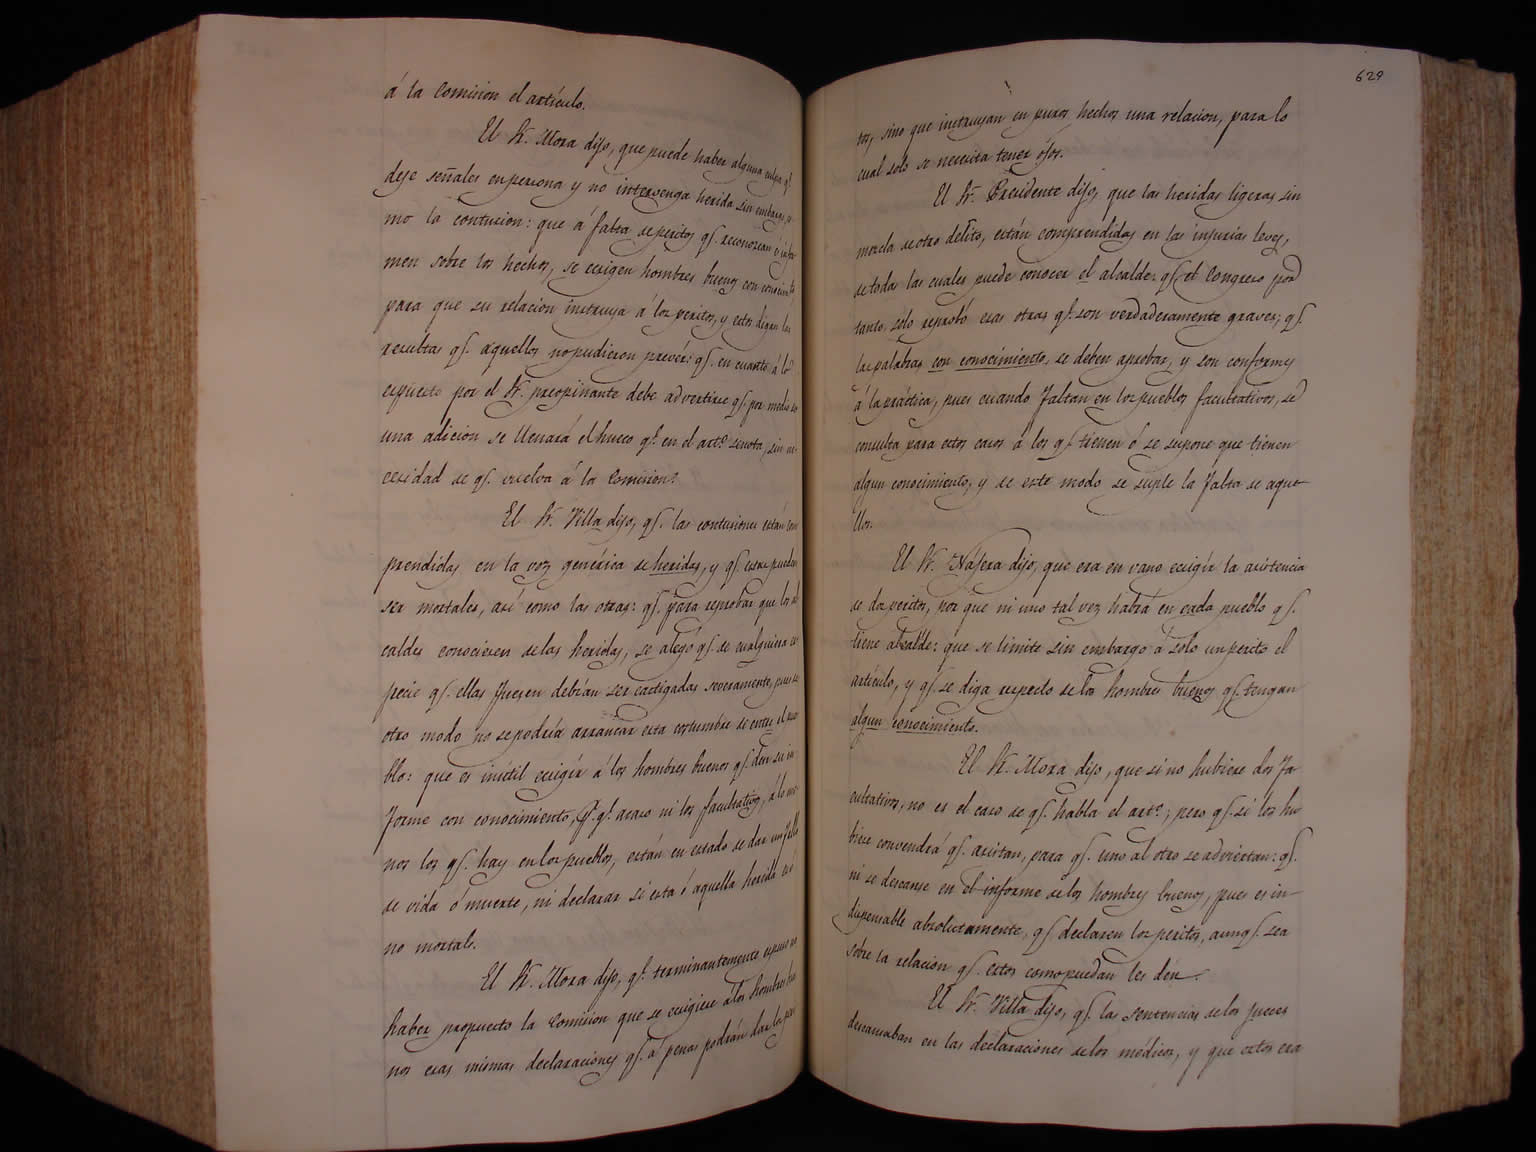 á la Comision el artículo.
El Sr. Mora dijo, que puede haber alguna culpa qe.
deje señales en persona y no intervenga herida sin embargo, co-
mo la contusion: que á falta de peritos qe. reconozcan é infor
men sobre los hechos, se exigen hombres buenos con conocimto.
para que su relacion instruya á los peritos, y estos digan las
resultas qe. aquellos no pudieron prevér: qe. en cuanto á lo
espuesto por el Sr. preopinante debe advertirse qe. por medio de
una adicion se llenará el hueco qe. en el arto. se nota, sin ne-
cesidad de qe. vuelva á la Comision.
El Sr. Villa dijo, qe. las contusiones están com
prendidas en la voz genérica de heridas, y qe. estas pueden
ser mortales, así como las otras: qe. para reprobar que los al
caldes conocieren de las heridas, se alegó qe. de cualquiera es
pecie qe. ellas fuesen debian ser castigadas severamente, pues de
otro modo no se podría arrancar esta costumbre de entre el pue
blo: que es inútil exigir á los hombres buenos qe. den su in
forme con conocimiento, p. qe. acaso ni los facultativos, á lo me-
nos los qe. hay en los pueblos, están en estado de dar un fallo
de vida ó muerte, ni declarar si esta ó aquella herida es ó
no mortal.
El Sr. Mora dijo, qe. terminantemente espuso no
haber propuesto la Comision que se exigiese á los hombres bue
nos esas mismas declaraciones qe. á penas podrán dar los peri
629
tos, sino que instruyan en puros hechos una relacion, para lo
cual solo se necesita tener ójos.
El Sr. Presidente dijo, que las heridas ligeras sin
mezcla de otro delito, están comprendidas en las injurias leves,
de todas las cuales puede conocer el alcalde: qe. el Congreso por
tanto, sólo reprobó esas otras qe. son verdaderamente graves; qe.
las palabras con conocimiento, se deben aprobar, y son conformes
á la práctica, pues cuando faltan en los pueblos facultativos, se
consulta para estos casos á los qe. tienen ó se supone que tienen
algun conocimiento, y de este modo se suple la falta de aque-
llos.
El Sr. Nájera dijo, que era en vano exigir la asistencia
de dos peritos, por que ni uno tal vez habrá en cada pueblo qe.
tiene alcalde: que se limite sin embargo á solo un perito el
artículo, y qe. se diga respecto de los hombres buenos qe. tengan
algun conocimiento.
El Sr. Mora dijo, que si no hubiere dos fa
cultativos, no es el caso de qe. habla el arto.; pero qe. si los hu
biere convendrá qe. asistan, para qe. uno al otro se adviertan: qe.
ni se descanse en el informe de los hombres buenos, pues es in-
dispensable absolutamente, qe. declaren los peritos, aunqe. sea
sobre la relacion qe. estos como puedan les den.
El Sr. Villa dijo, qe. las sentencias de los jueces
descansaban en las declaraciones de los médicos, y que estos era